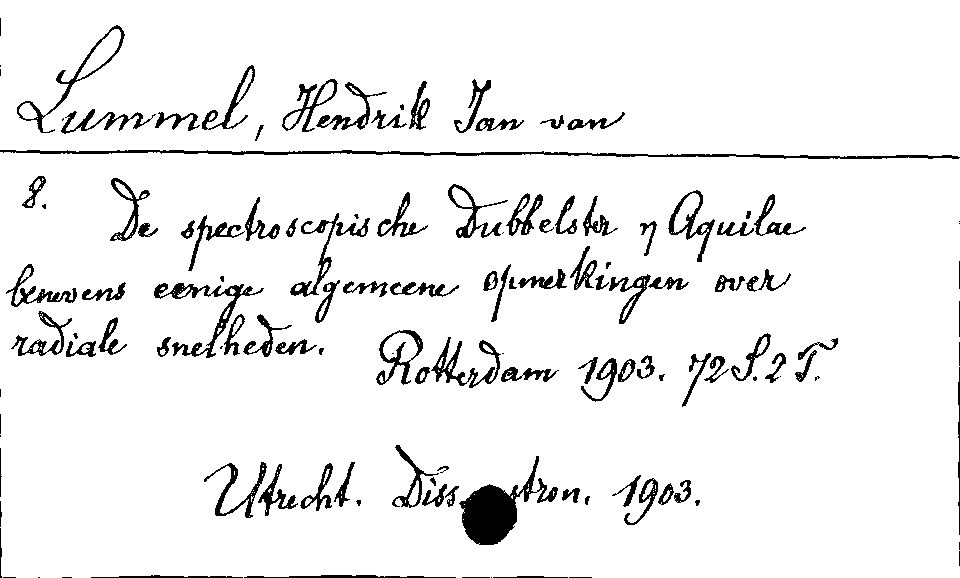 Lummel, Hendrik Jan van
8. De spectroscopische Dubbelster η Aquilae
benevens eenige algemeene opmerkingen over
radiale snelheden. Rotterdam 1903. 72 S. 2 T.
Utrecht. Diss. 1903.